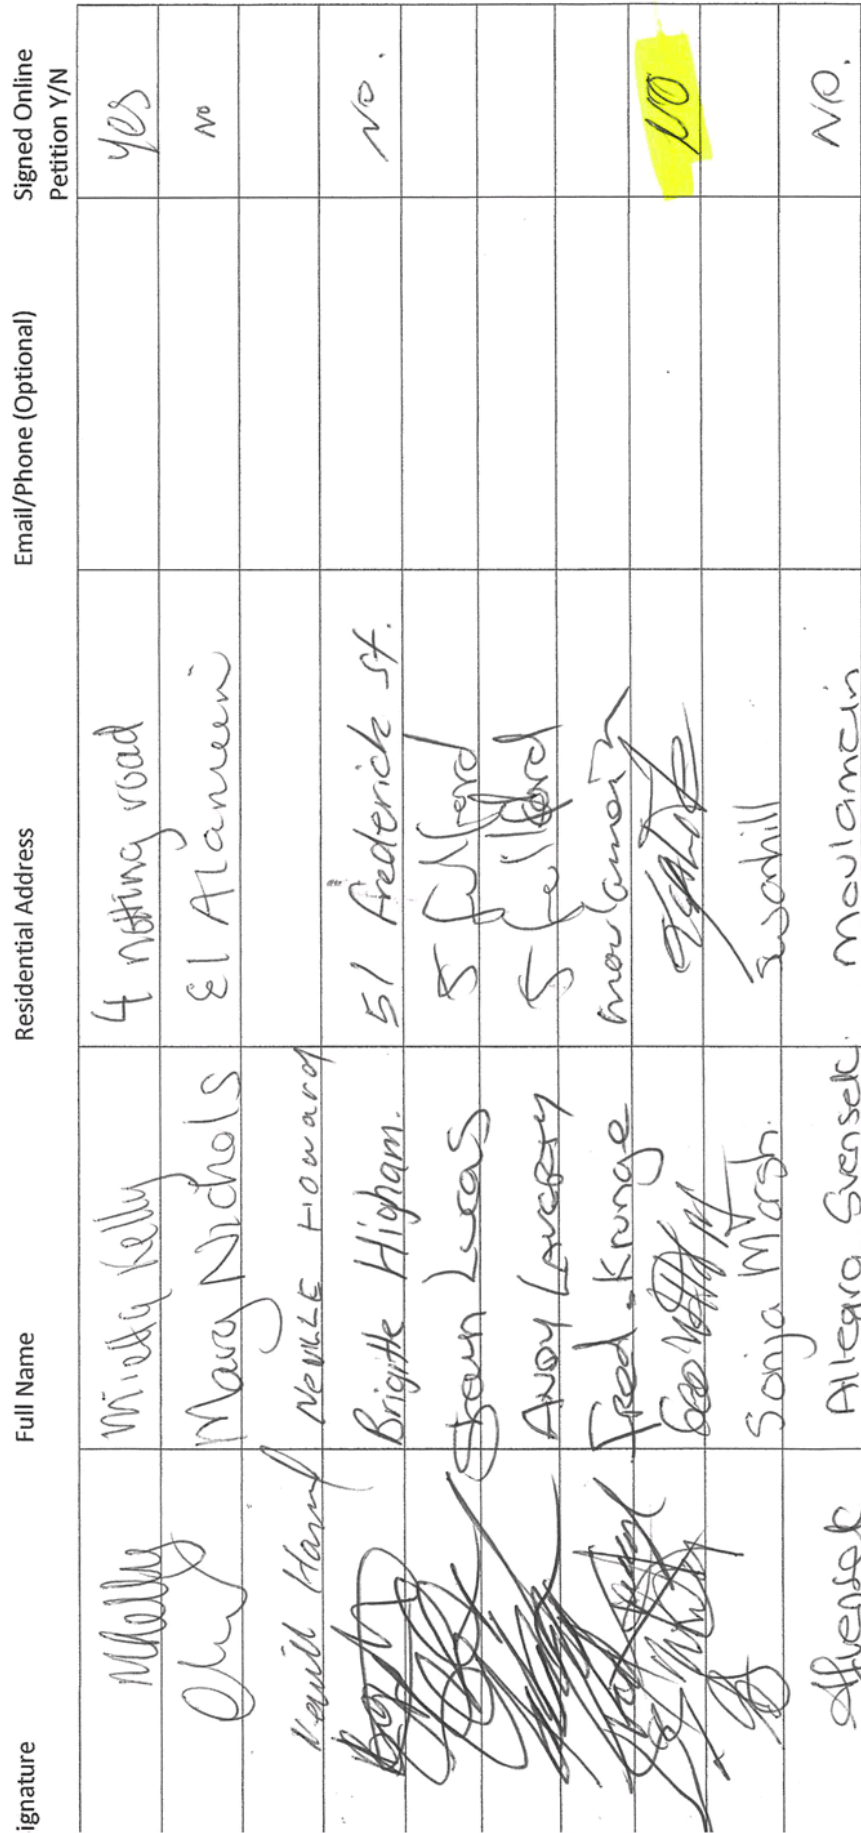 ignature Full Name Residential Address Email/Phone (Optional) Signed Online
Petition Y/N
Kelly 4 notting road yes
Mary Nichols El Alamein no
NEVILLE HOWARD
Brigitte Higham. 51 Frederick st. No.
Shaun Lucas 5 Fulford
ANDY LAVERTY 5 Fulford
Fred Krunge
NO
Sonja Marsh. Swanhill
Allegra Svensek. Moulamein NO.